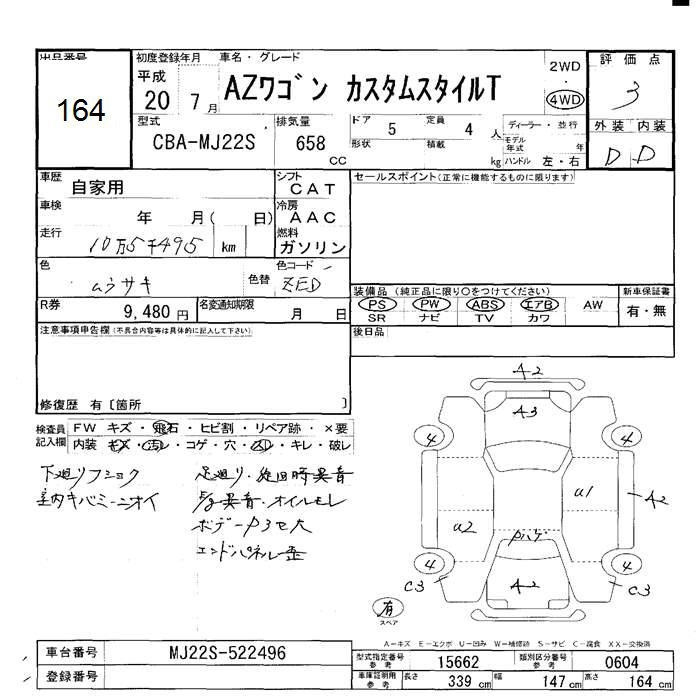 出品番号
164
初度登録年月
平成
20 7月
車名・グレード
AZワゴン カスタムスタイルT
2WD
4WD
評価点
3
型式
CBA-MJ22S
排気量
658
CC
ドア
5
定員
4
人
形状
積載
kg
ディーラー・並行
モデル年式
年
ハンドル 左・右
外装 内装
D D
車歴
自家用
シフト
CAT
車検
年 月( 日)
冷房
AAC
走行
10万5千495 km
燃料
ガソリン
色
ムラサキ
色替
色コード
ZED
R券
9,480円
名変通知期限
月 日
セールスポイント(正常に機能するものに限ります)
装備品 (純正品に限り〇をつけてください)
PS PW ABS エアB AW
SR ナビ TV カワ
新車保証書
有・無
注意事項申告欄(不具合内容等は具体的に記入して下さい)
後日品
修復歴 有〔箇所 〕
検査員記入欄
FW キズ・飛石・ヒビ割・リペア跡・×要
内装 キズ・汚レ・コゲ・穴・スレ・キレ・破レ
下廻りフショク
室内キバミ・ニオイ
足廻り・旋回時異音
異音・オイルモレ
エンドパネル歪
A2
A3
4
4
U1
A2
U2
Pハゲ
4
4
C3
A2
C3
有
スペア
A-キズ E-エクボ U-凹み W-補修跡 S-サビ C-腐食 XX-交換済
車台番号
MJ22S-522496
登録番号
型式指定番号
参考
15662
類別区分番号
参考
0604
車庫証明用
参考
長さ
339 cm
幅
147 cm
高さ
164 cm